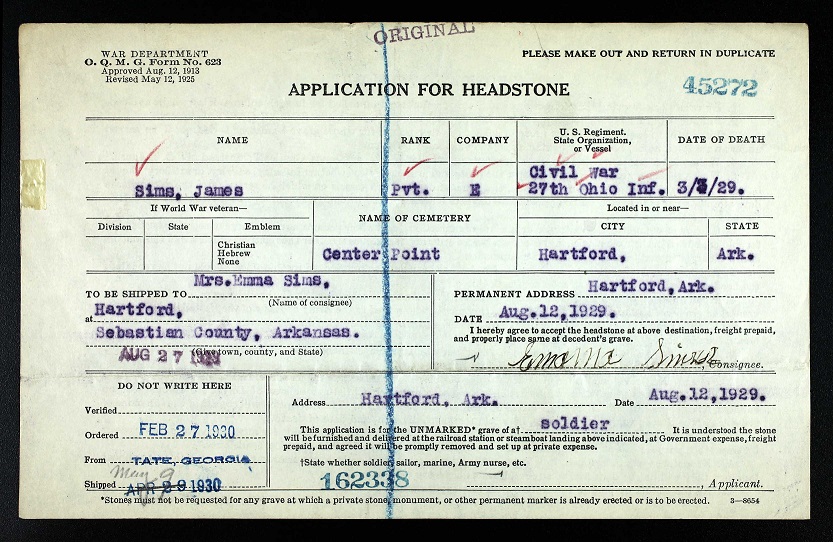 ORIGINAL
WAR DEPARTMENT
O. Q. M. G. Form No. 623
Approved Aug. 12, 1913
Revised May 12, 1925
PLEASE MAKE OUT AND RETURN IN DUPLICATE
APPLICATION FOR HEADSTONE
45272
NAME
RANK
COMPANY
U. S. Regiment, State Organization, or Vessel
DATE OF DEATH
Sims, James
Pvt.
E
Civil War
27th Ohio Inf.
3/3/29.
If World War veteran—
Division
State
Emblem
Christian
Hebrew
None
NAME OF CEMETERY
Center Point
Located in or near—
CITY
STATE
Hartford,
Ark.
Mrs.Emma Sims,
TO BE SHIPPED TO
(Name of consignee)
at Hartford,
Sebastian County, Arkansas.
(Give town, county, and State)
AUG 27
PERMANENT ADDRESS Hartford,Ark.
DATE Aug.12,1929.
I hereby agree to accept the headstone at above destination, freight prepaid,
and properly place same at decedent's grave.
Emma Simss, Consignee.
DO NOT WRITE HERE
Verified
Ordered FEB 27 1930
From TATE, GEORGIA
May 9
Shipped APR 29 1930
Address Hartford, Ark. Date Aug.12,1929.
This application is for the UNMARKED* grave of a† soldier It is understood the stone
will be furnished and delivered at the railroad station or steamboat landing above indicated, at Government expense, freight
prepaid, and agreed it will be promptly removed and set up at private expense.
†State whether soldier, sailor, marine, Army nurse, etc.
162338
, Applicant.
*Stones must not be requested for any grave at which a private stone, monument, or other permanent marker is already erected or is to be erected. 3—8654